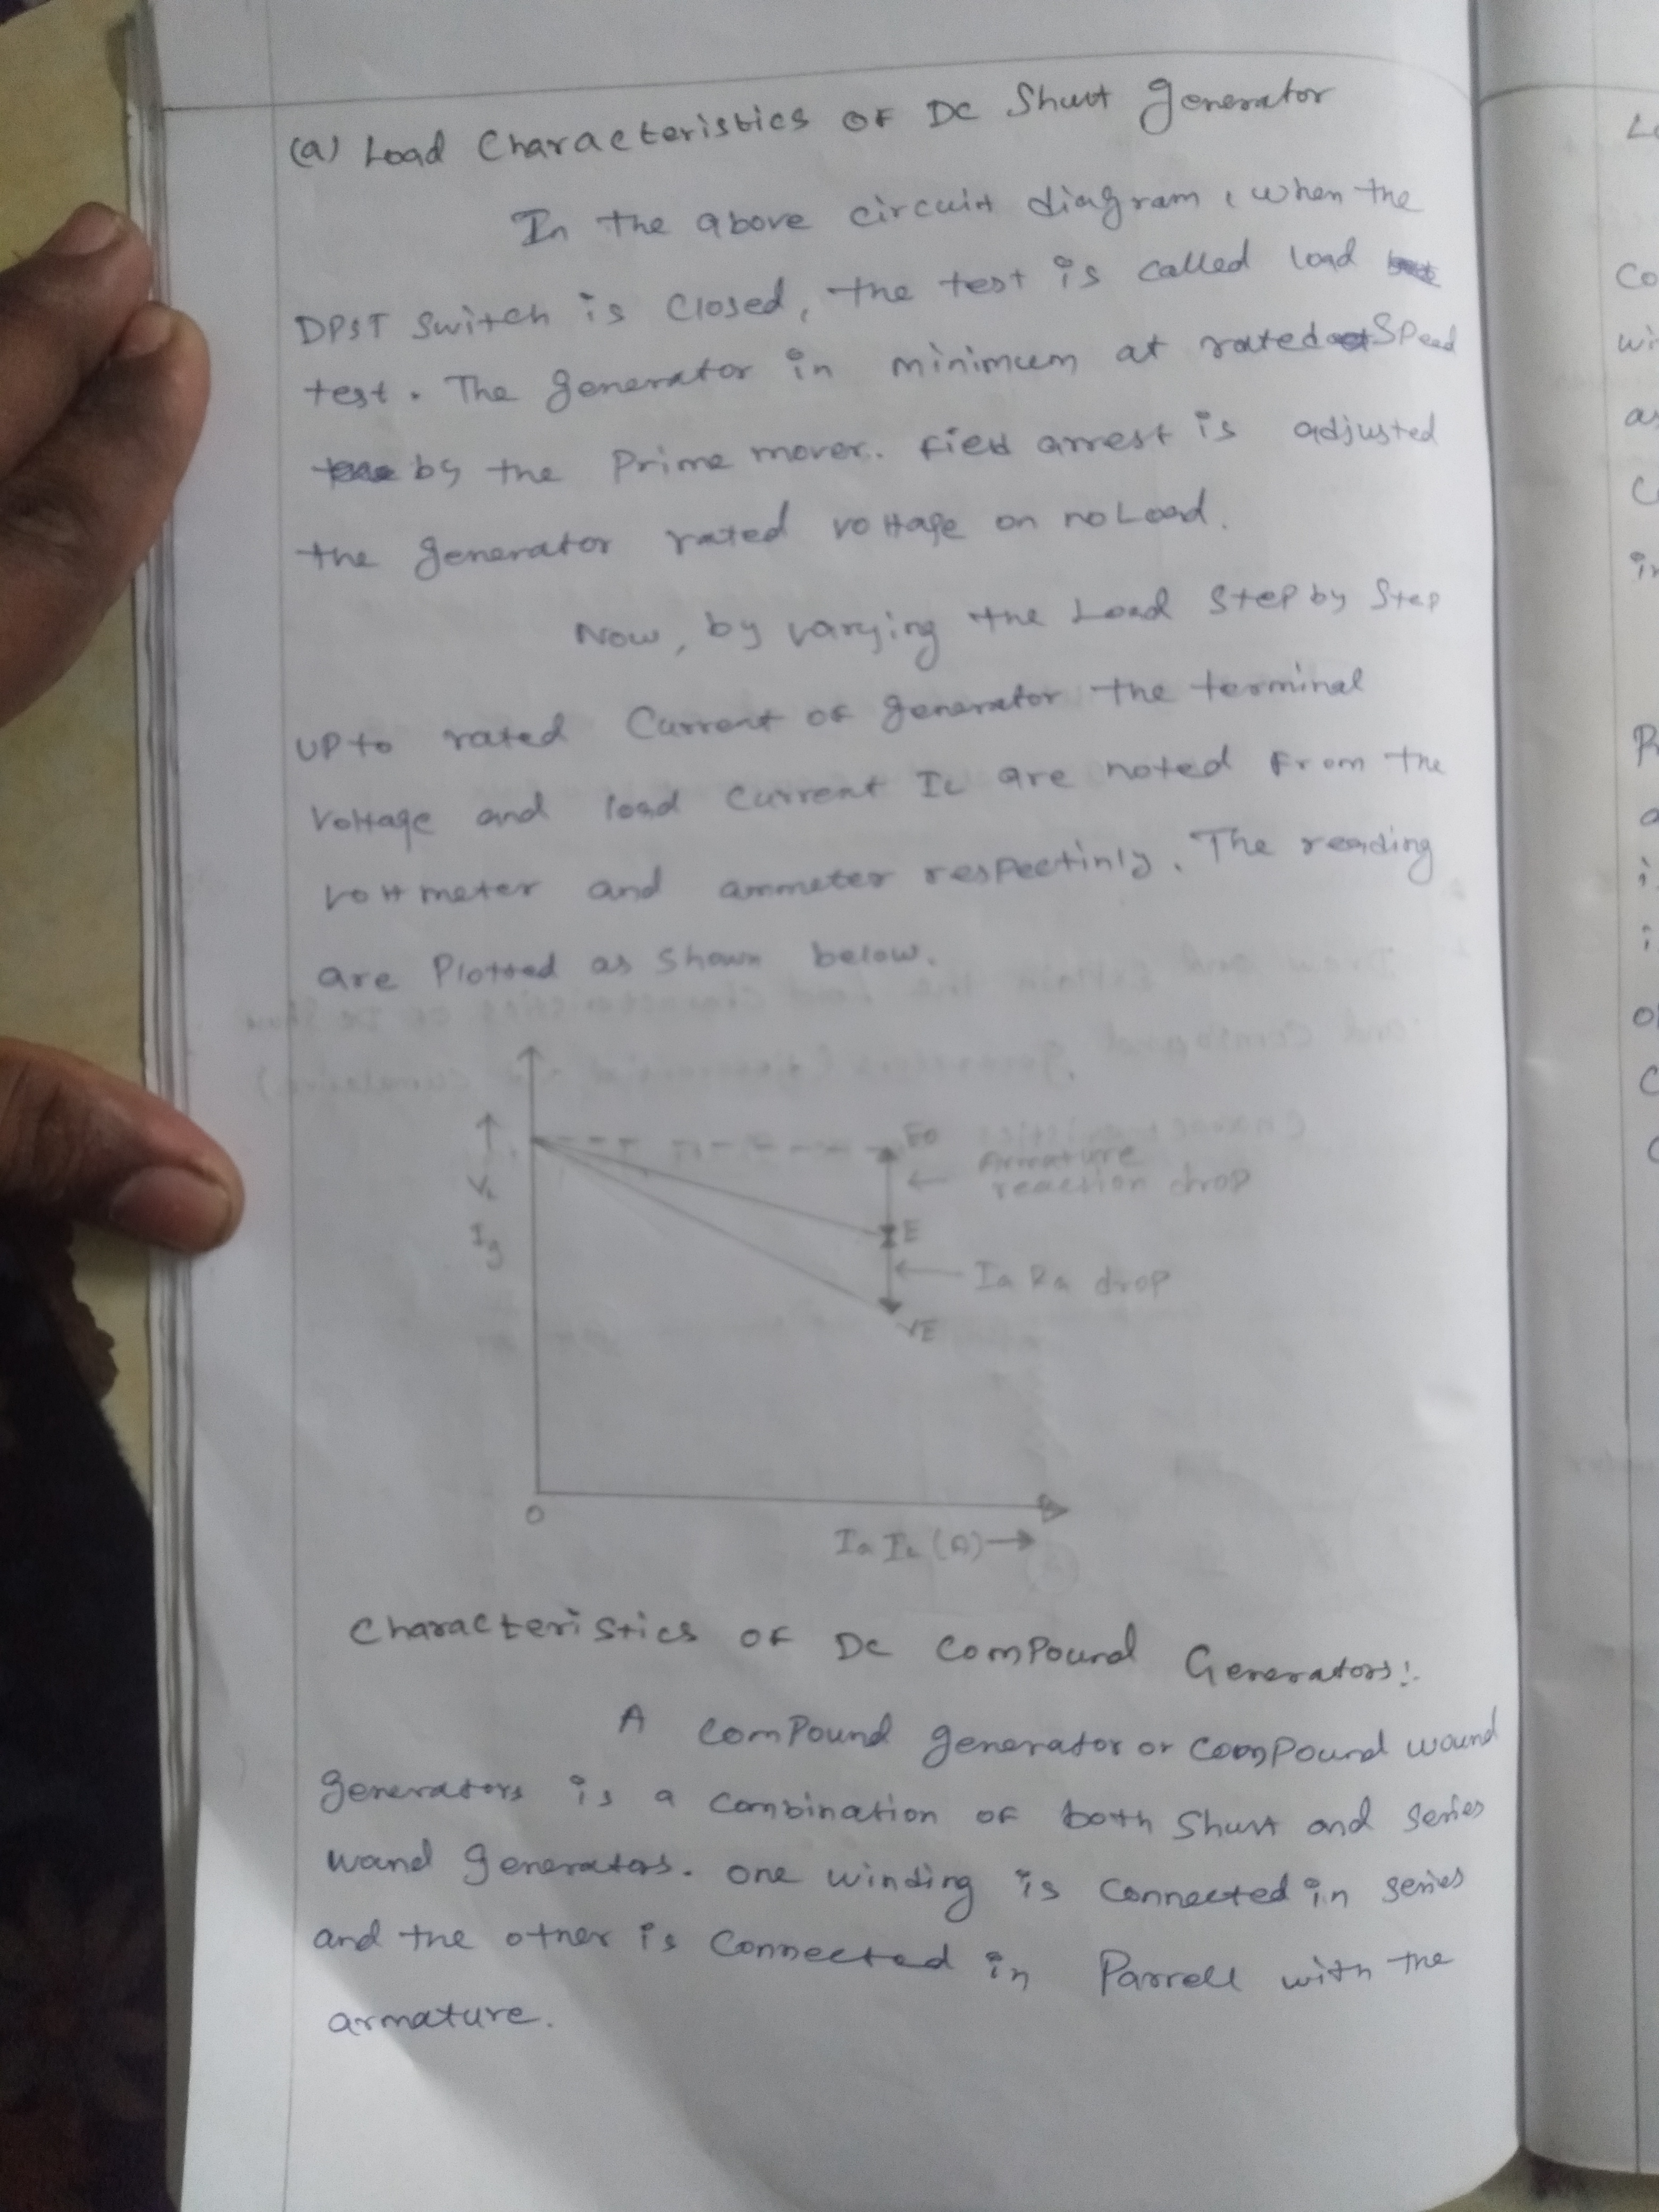 (a) Load Characteristics OF DC Shunt Generator
In the above circuit diagram, when the
DPST switch is closed, the test is called load
test. The generator in minimum at rated speed
by the Prime mover. Field arrest is adjusted
the generator rated voltage on no Load.
Now, by varying the Load Step by Step
UP to rated Current of generator the terminal
Voltage and load current IL are noted from the
voltmeter and ammeter respectinly. The reading
are Plotted as shown below.
E0
Armature
reaction drop
VL
Ig
E
Ia Ra drop
VE
0
Ia IL (A)
Characteristics OF DC Compound Generators:
A Compound generator or compound wound
generators is a combination of both Shunt and series
wand generators. one winding is connected in series
and the other is connected in Parrell with the
armature.
L
Co
wi
as
C
in
P
a
i
i
o
C
C